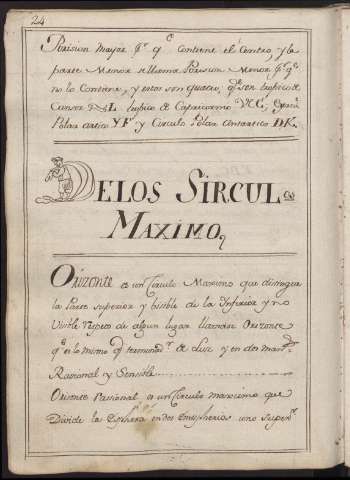 24
Porision mayor pr. qe contiene el Centro, y la
parte Menor se llama Porision Menor pr. qe
no lo Contiene, y estos son quatro, qe son tropico de
Cancer L tropico de Capricornio C,
Polar artico Y F y Circulo Polar Antartico D K.
DELOS SIRCULos
MAXIMOs
Orizonte es un Circulo Maximo que distingue
la Parte superior y bisible de la Ynferior y no
Visible respeto de algun lugar llamase Orizonte
qe es lo mismo qe de Luz y en dos
Rasional y Sensible
Orizonte Rasional es un Circulo maximo que
Divide la Esphera en dos Emispherios uno Superr.